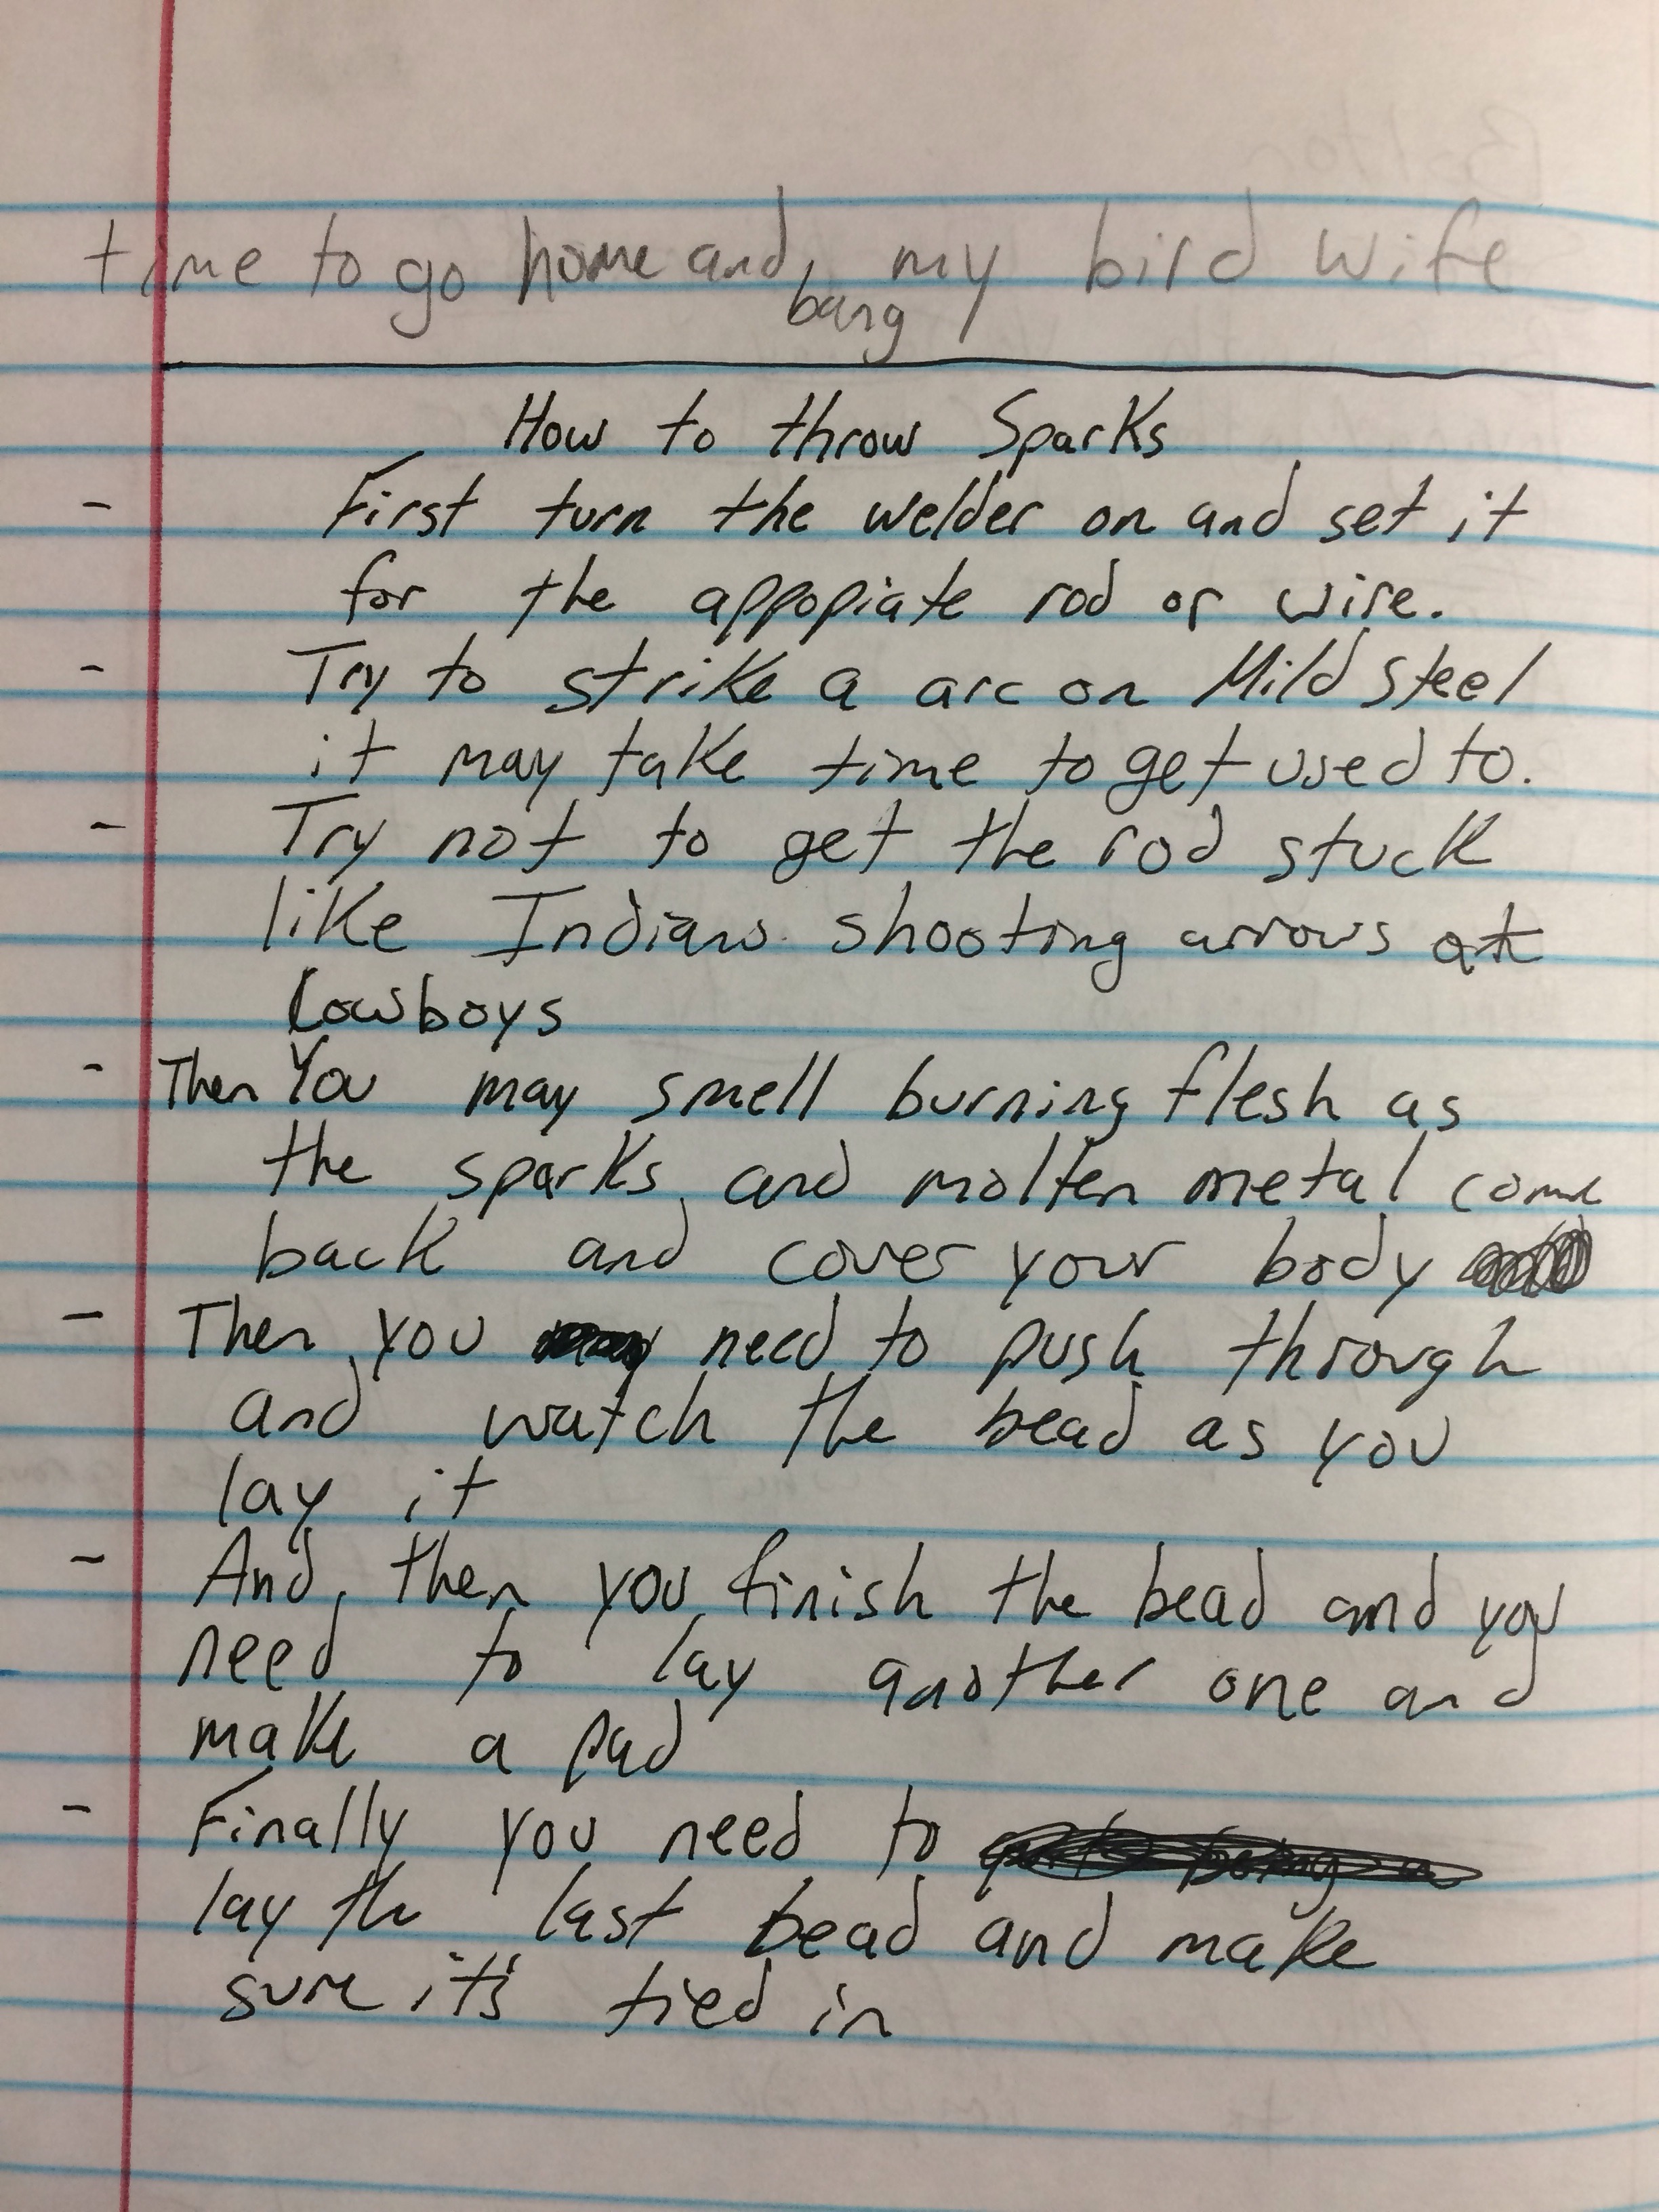 time to go home and bang my bird wife
How to throw Sparks
- First turn the welder on and set it
for the appopiate rod or wire.
- Try to strike a arc on Mild steel
it may take time to get used to.
- Try not to get the rod stuck
like Indians shooting arrows at
Cowboys
- Then You may smell burning flesh as
the sparks and molten metal come
back and cover your body
- Then you need to push through
and watch the bead as you
lay it
- And then you finish the bead and you
need to lay another one and
make a pad
- Finally you need to
lay the last bead and make
sure it's tied in